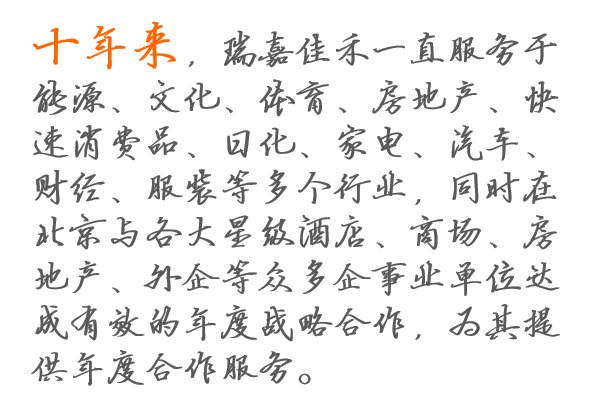 十年来，瑞嘉佳禾一直服务于
能源、文化、体育、房地产、快
速消费品、日化、家电、汽车、
财经、服装等多个行业，同时在
北京与各大星级酒店、商场、房
地产、外企等众多企事业单位达
成有效的年度战略合作，为其提
供年度合作服务。